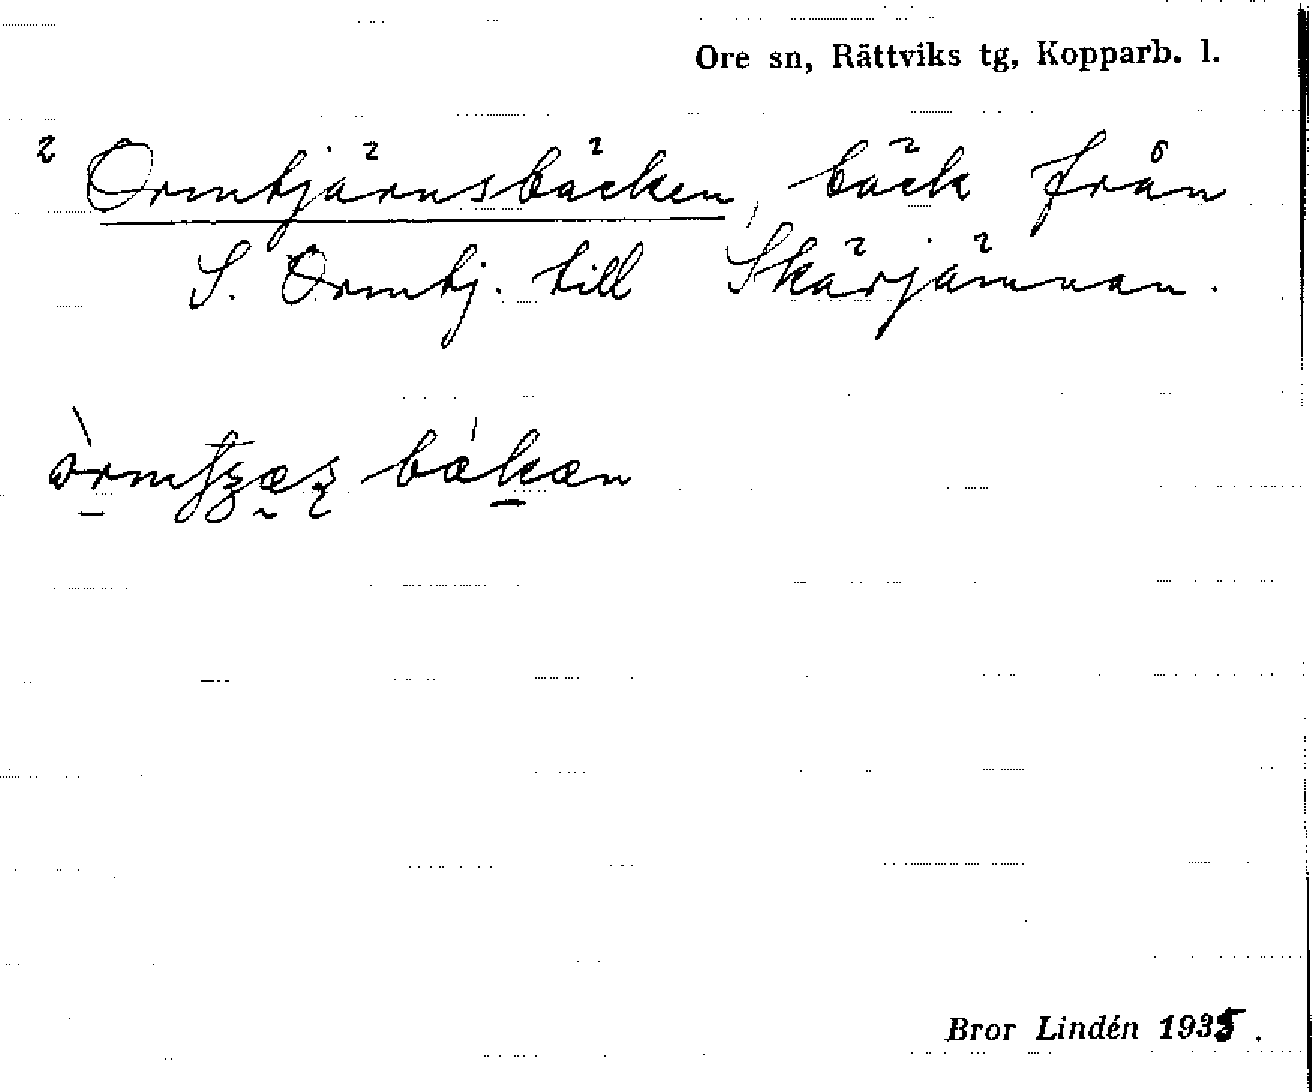 Ore sn, Rättviks tg, Kopparb. l.
2 Ormtjärnsbäcken, bäck från
S. Ormtj. till Skärjämnan.
bækæn
Bror Lindén 1935.